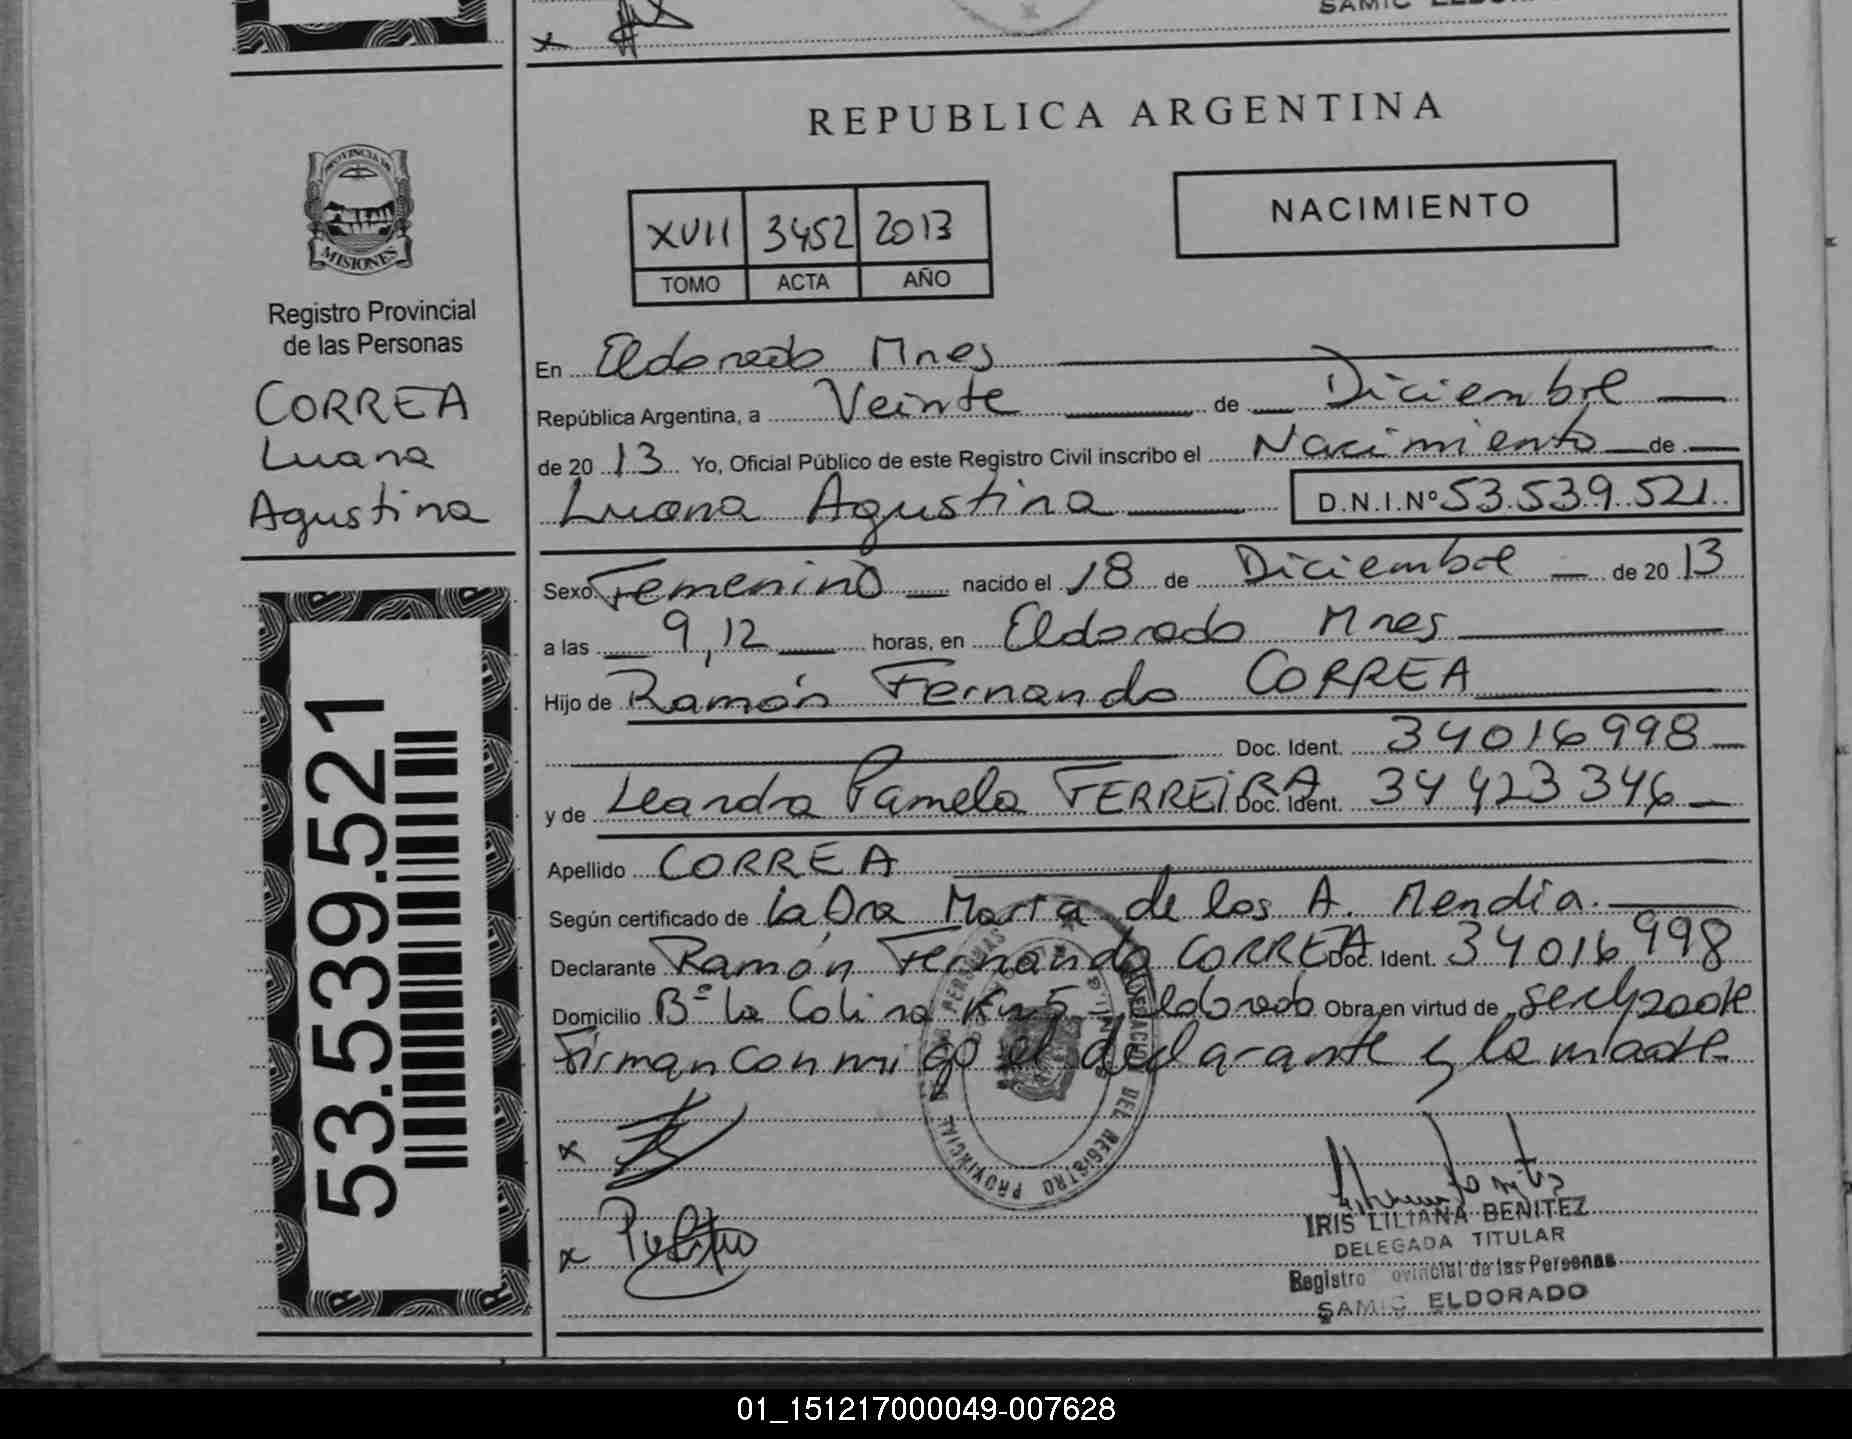 SAMIC ELDORADO
x
REPUBLICA ARGENTINA
NACIMIENTO
XVII 3452 2013
TOMO ACTA AÑO
PROVINCIA DE
MISIONES
Registro Provincial
de las Personas
CORREA
Luana
Agustina
53.539.521
En Eldorado Mnes
República Argentina, a Veinte de Diciembre
de 2013 Yo, Oficial Público de este Registro Civil inscribo el Nacimiento de
Luana Agustina D.N.I.Nº 53.539.521
Sexo Femenino nacido el 18 de Diciembre de 2013
a las 9,12 horas, en Eldorado Mnes
Hijo de Ramón Fernando CORREA
Doc. Ident. 34016998
y de Leandra Pamela FERREIRA Doc. Ident. 34423346
Apellido CORREA
Según certificado de la Dra Marta de los A. Mendia.
Declarante Ramón Fernando CORREA Doc. Ident. 34016998
Domicilio Bº La Colina Km 5 - Eldorado Obra en virtud de
Firman conmigo el declarante y la madre
x
x
DELEGACION DEL REGISTRO PROVINCIAL DE LAS PERSONAS
IRIS LILIANA BENITEZ
DELEGADA TITULAR
Registro Provincial de las Personas
SAMIC ELDORADO
01_151217000049-007628